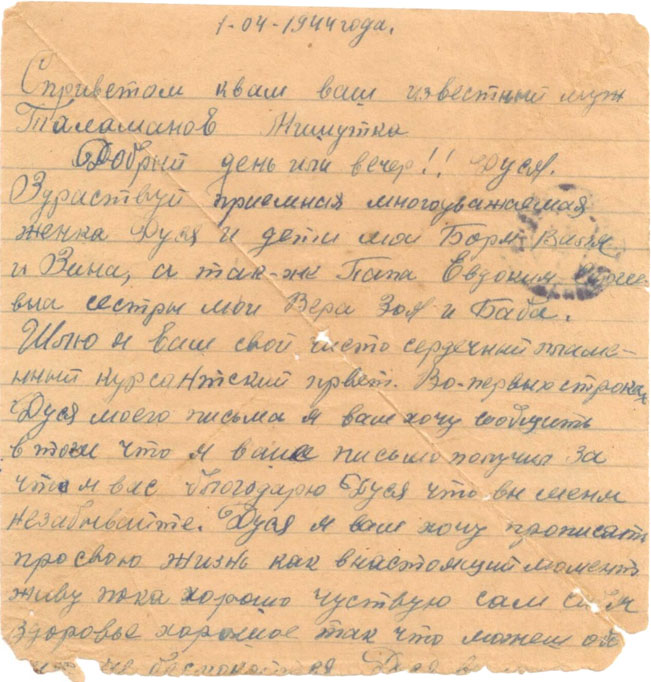 1-04-1944 года.
С приветом к вам ваш известный муж
Таламанов Мишутка
Добрый день или вечер!! Дуся.
Здраствуй приемная многоуважаемая
женка Дуся и дети мои Боря, Витя
и Зина, а так-же Папа Евдоким
вна сестры мои Вера Зоя и Баба.
Шлю я вам свой чисто сердечный пламе-
нный курсантский првет. Во-первых строках
Дуся моего письма я вам хочу сообщить
в том что я ваше письмо получил за
что я вас благодарю Дуся что вы меня
незабывайте. Дуся я вам хочу прописать
просвою жизнь как внастоящий момент
живу пока хорошо чуствую сам себя
здоровье хорошое так что можеш обо
не беспокоится Дуся